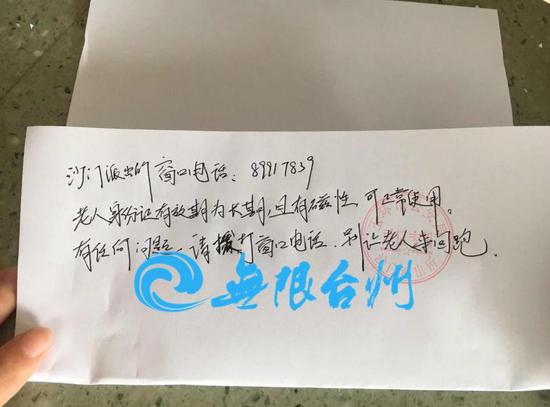 沙门派出所窗口电话：89917839
老人身份证有效期为长期，且有磁性，可正常使用。
有任何问题，请拨打窗口电话，别让老人来回跑。
無限台州